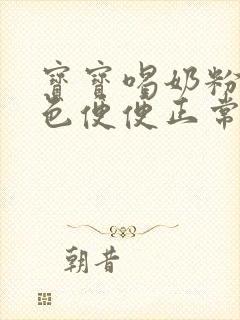 寶寶喝奶粉
色便便正常
朝昔